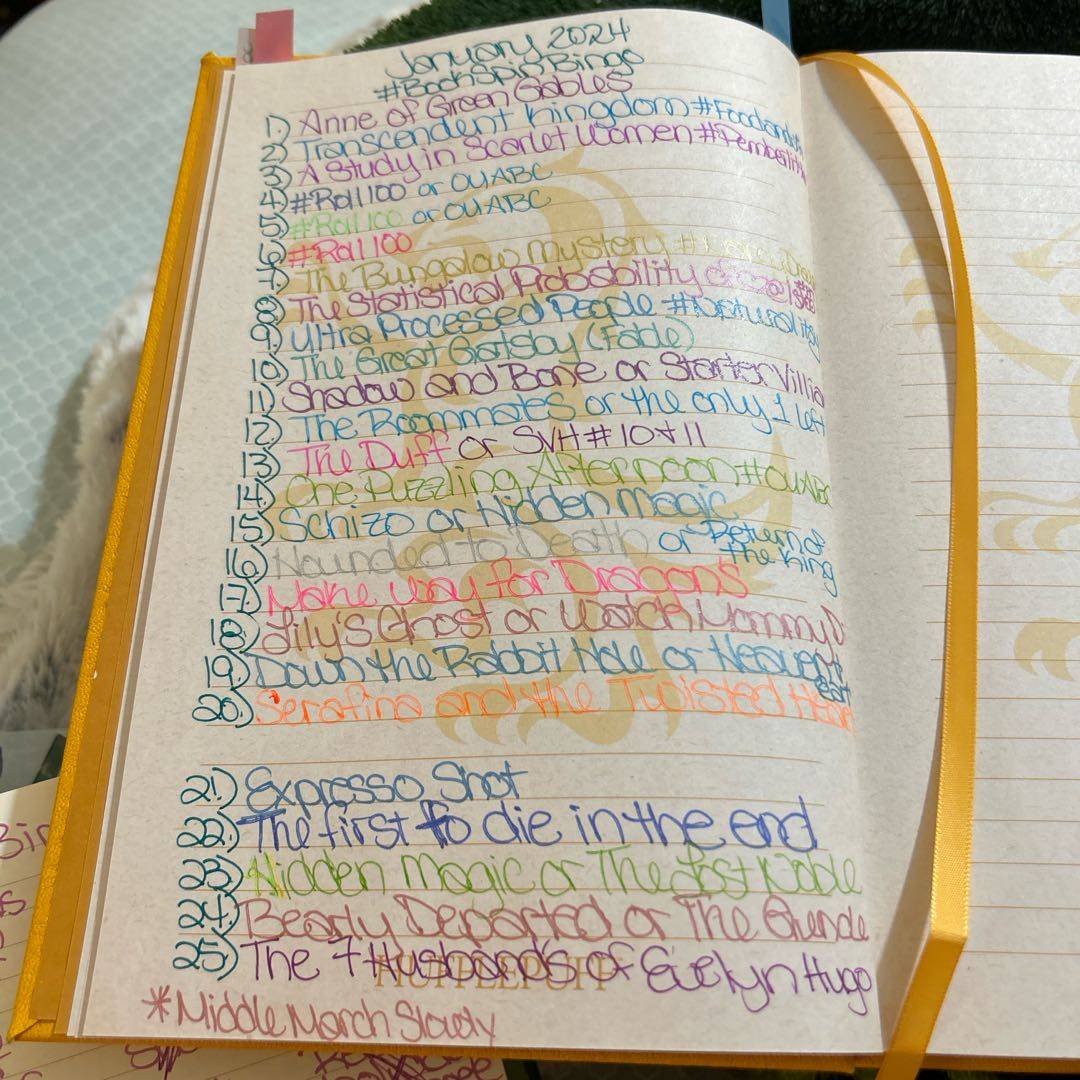 January 2024
#BookSpinBingo
1) Anne of Green Gables
2) Transcendent Kingdom #Foodand
3) A Study in Scarlet Women #Pemberlittens
4) #Roll100 or OUABC
5) #Roll100 or OUABC
6) #Roll100
7) The Bungalow Mystery
8) The Statistical Probability of
9) Ultra Processed People #Naturalitsy
10) The Great Gatsby (Fable)
11) Shadow and Bone or Starter Villia
12) The Roommates or the only 1 left
13) The Duff or SVH #10+11
14) One Puzzling Afternoon #OUABC
15) Schizo or Hidden Magic
16) Hounded to Death or Return of
the King
17) Make Way for Dragons
18) Lily's Ghost or Watch Mommy D
19) Down the Rabbit Hole or
20) Serafina and the Twisted
21) Expresso Shot
22) The first to die in the end
23) Hidden Magic or The Last Noble
24) Bearly Departed or The
25) The 7 Husbands of Evelyn Hugo
HUFFLEPUFF
*MiddleMarch Slowly